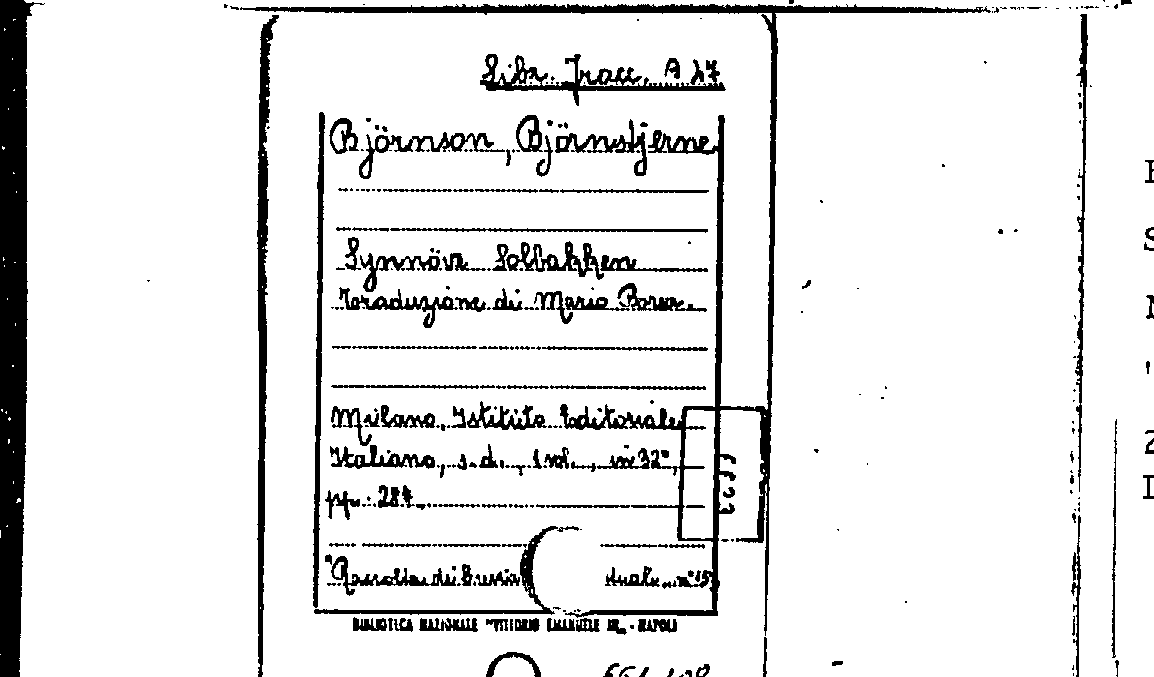 Libr. Tracc. A 47
Björnson, Björnstjerne
Synnöve Solbakken
Traduzione di Mario Borsa.
Milano, Istituto Editoriale
Italiano, s.d., 1 vol., in 32°,
pp. 284.
"Raccolta di Breviari
n° 15
BIBLIOTECA NAZIONALE "VITTORIO EMANUELE III" - NAPOLI